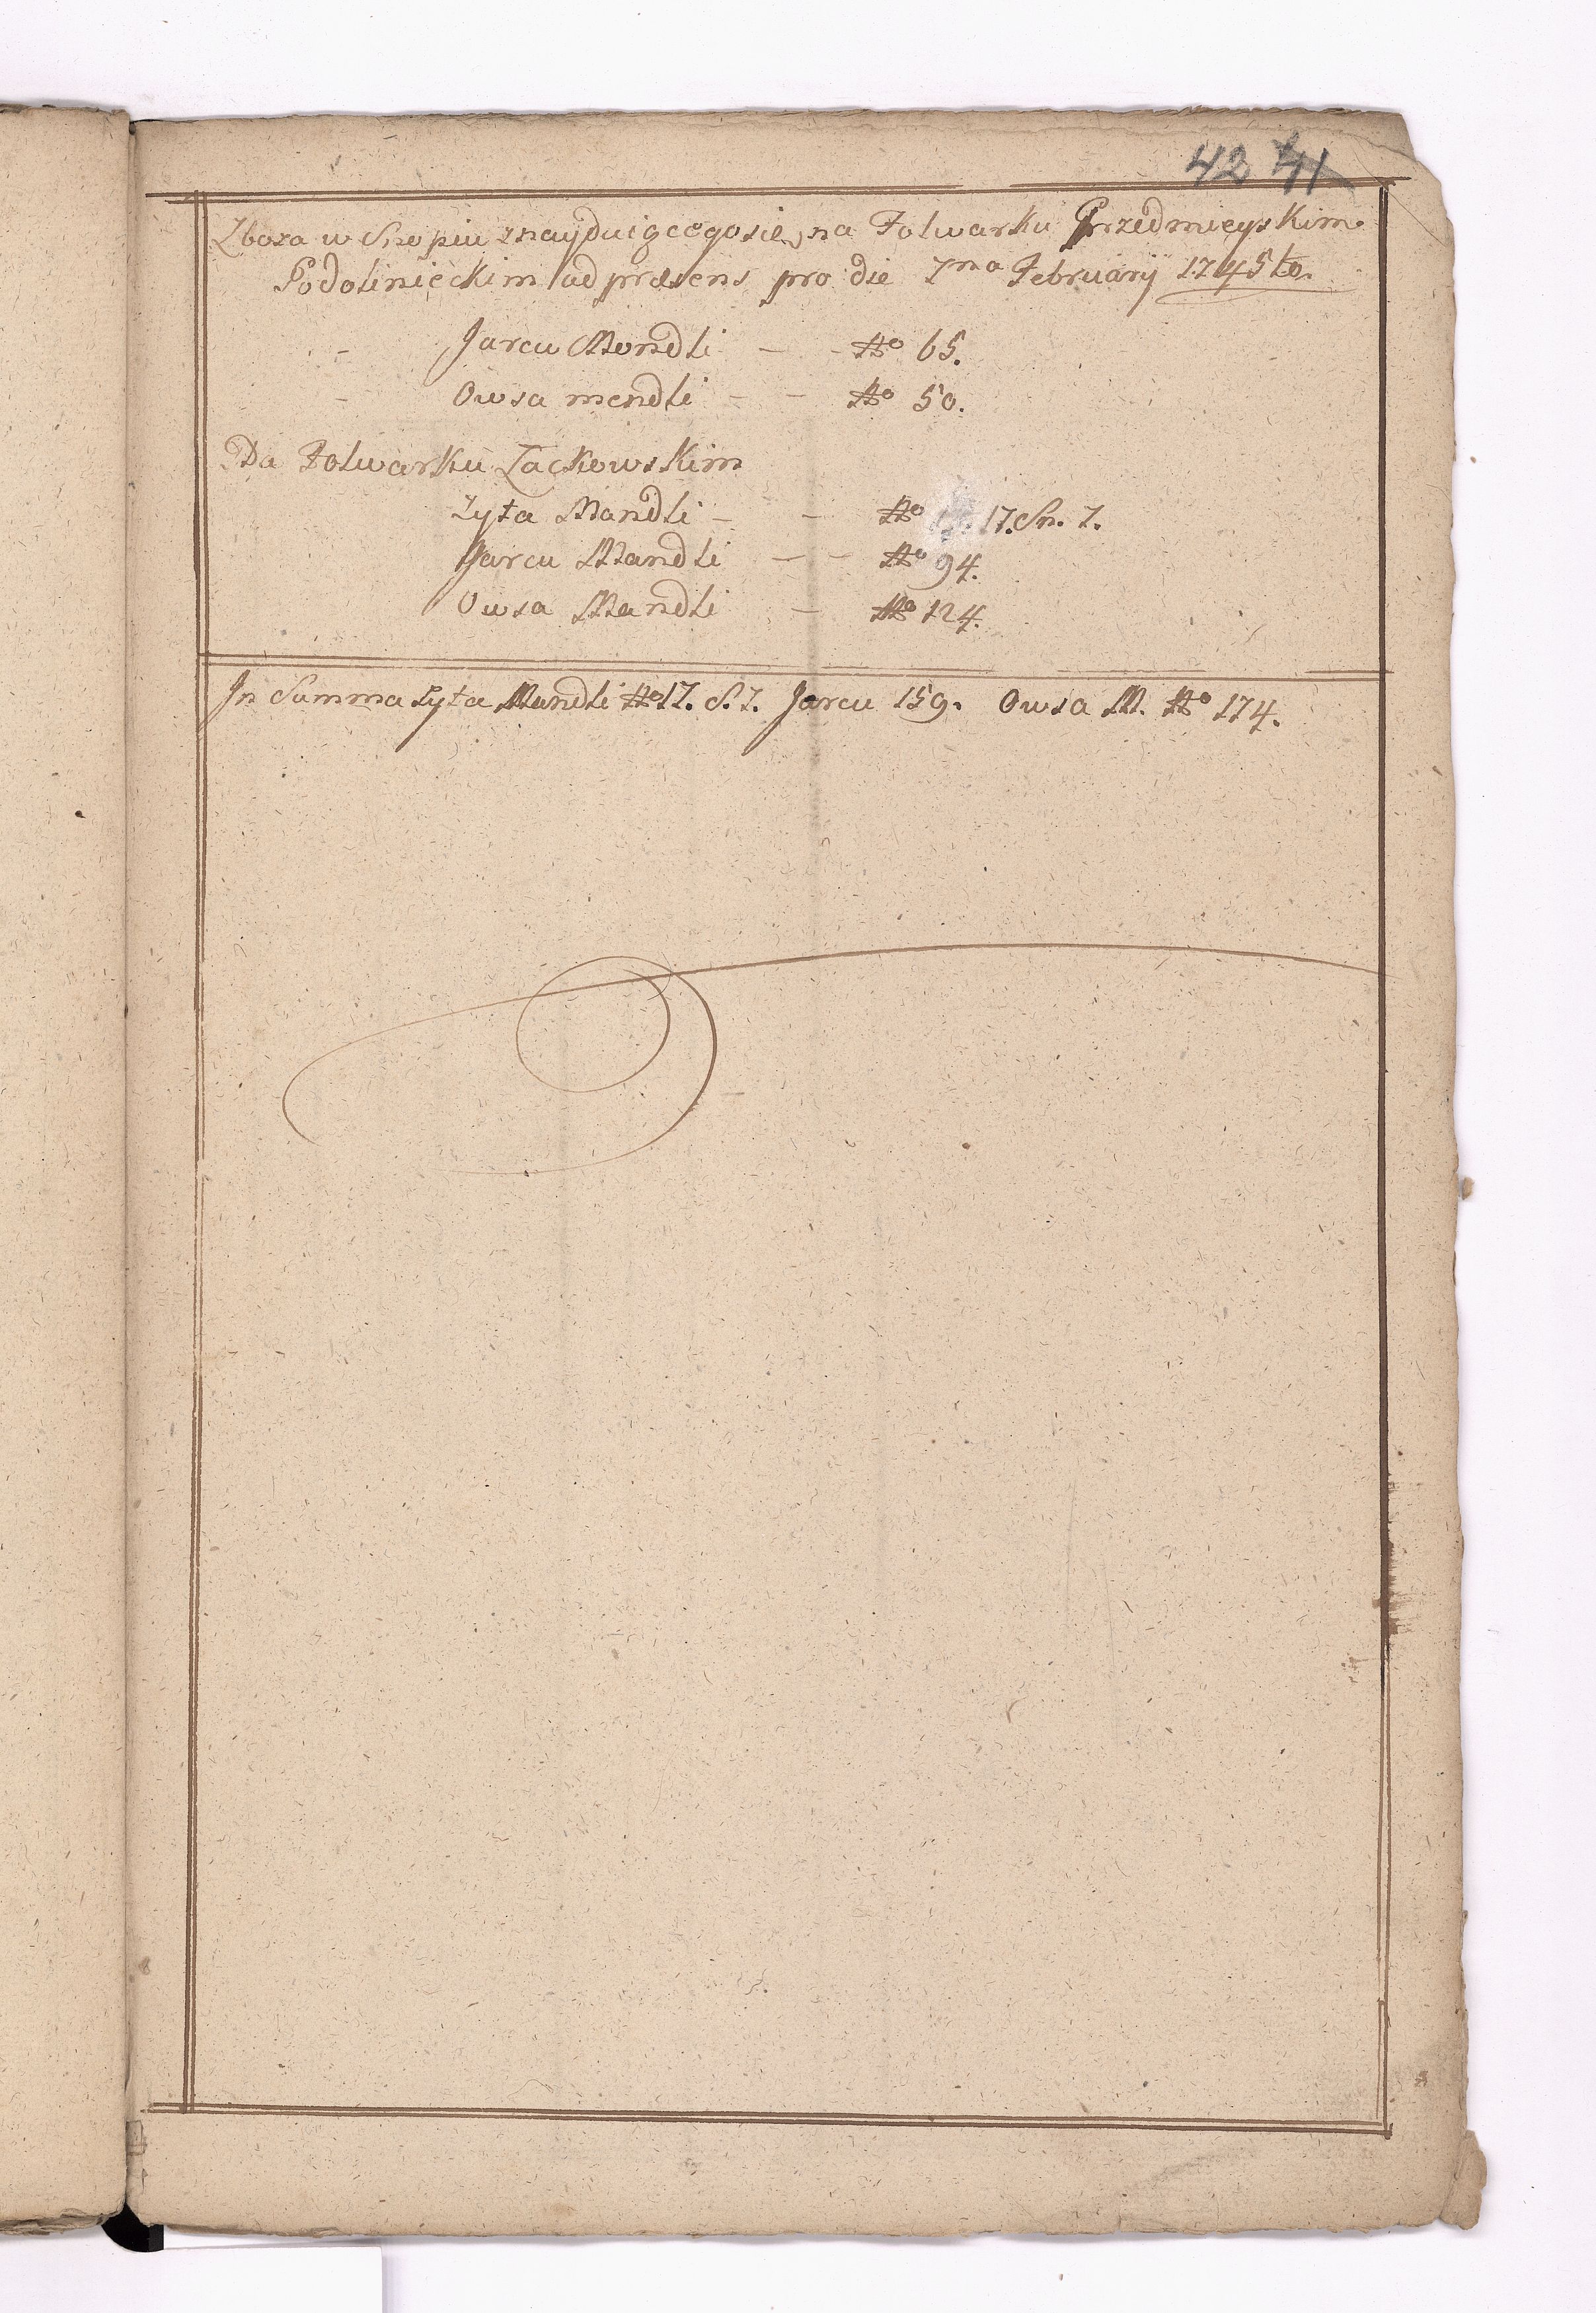 42 41
Zboża w Snopiu znayduiącegosie, na Folwarku Przedmieyskim
Podolinieckim ad præsens pro die 7ma Februarij 1745to.
Jarcu Mendli - - No 65.
Owsa mendli - - No 50.
Na Folwarku Lackowskim
Żyta Mandli - - No 17. Sn. 7.
Jarcu Mandli - - No 94.
Owsa Mandli - No 124.
Jn Summa Żyta Mandli No 17. S. 7. Jarcu 159. Owsa M. No 174.